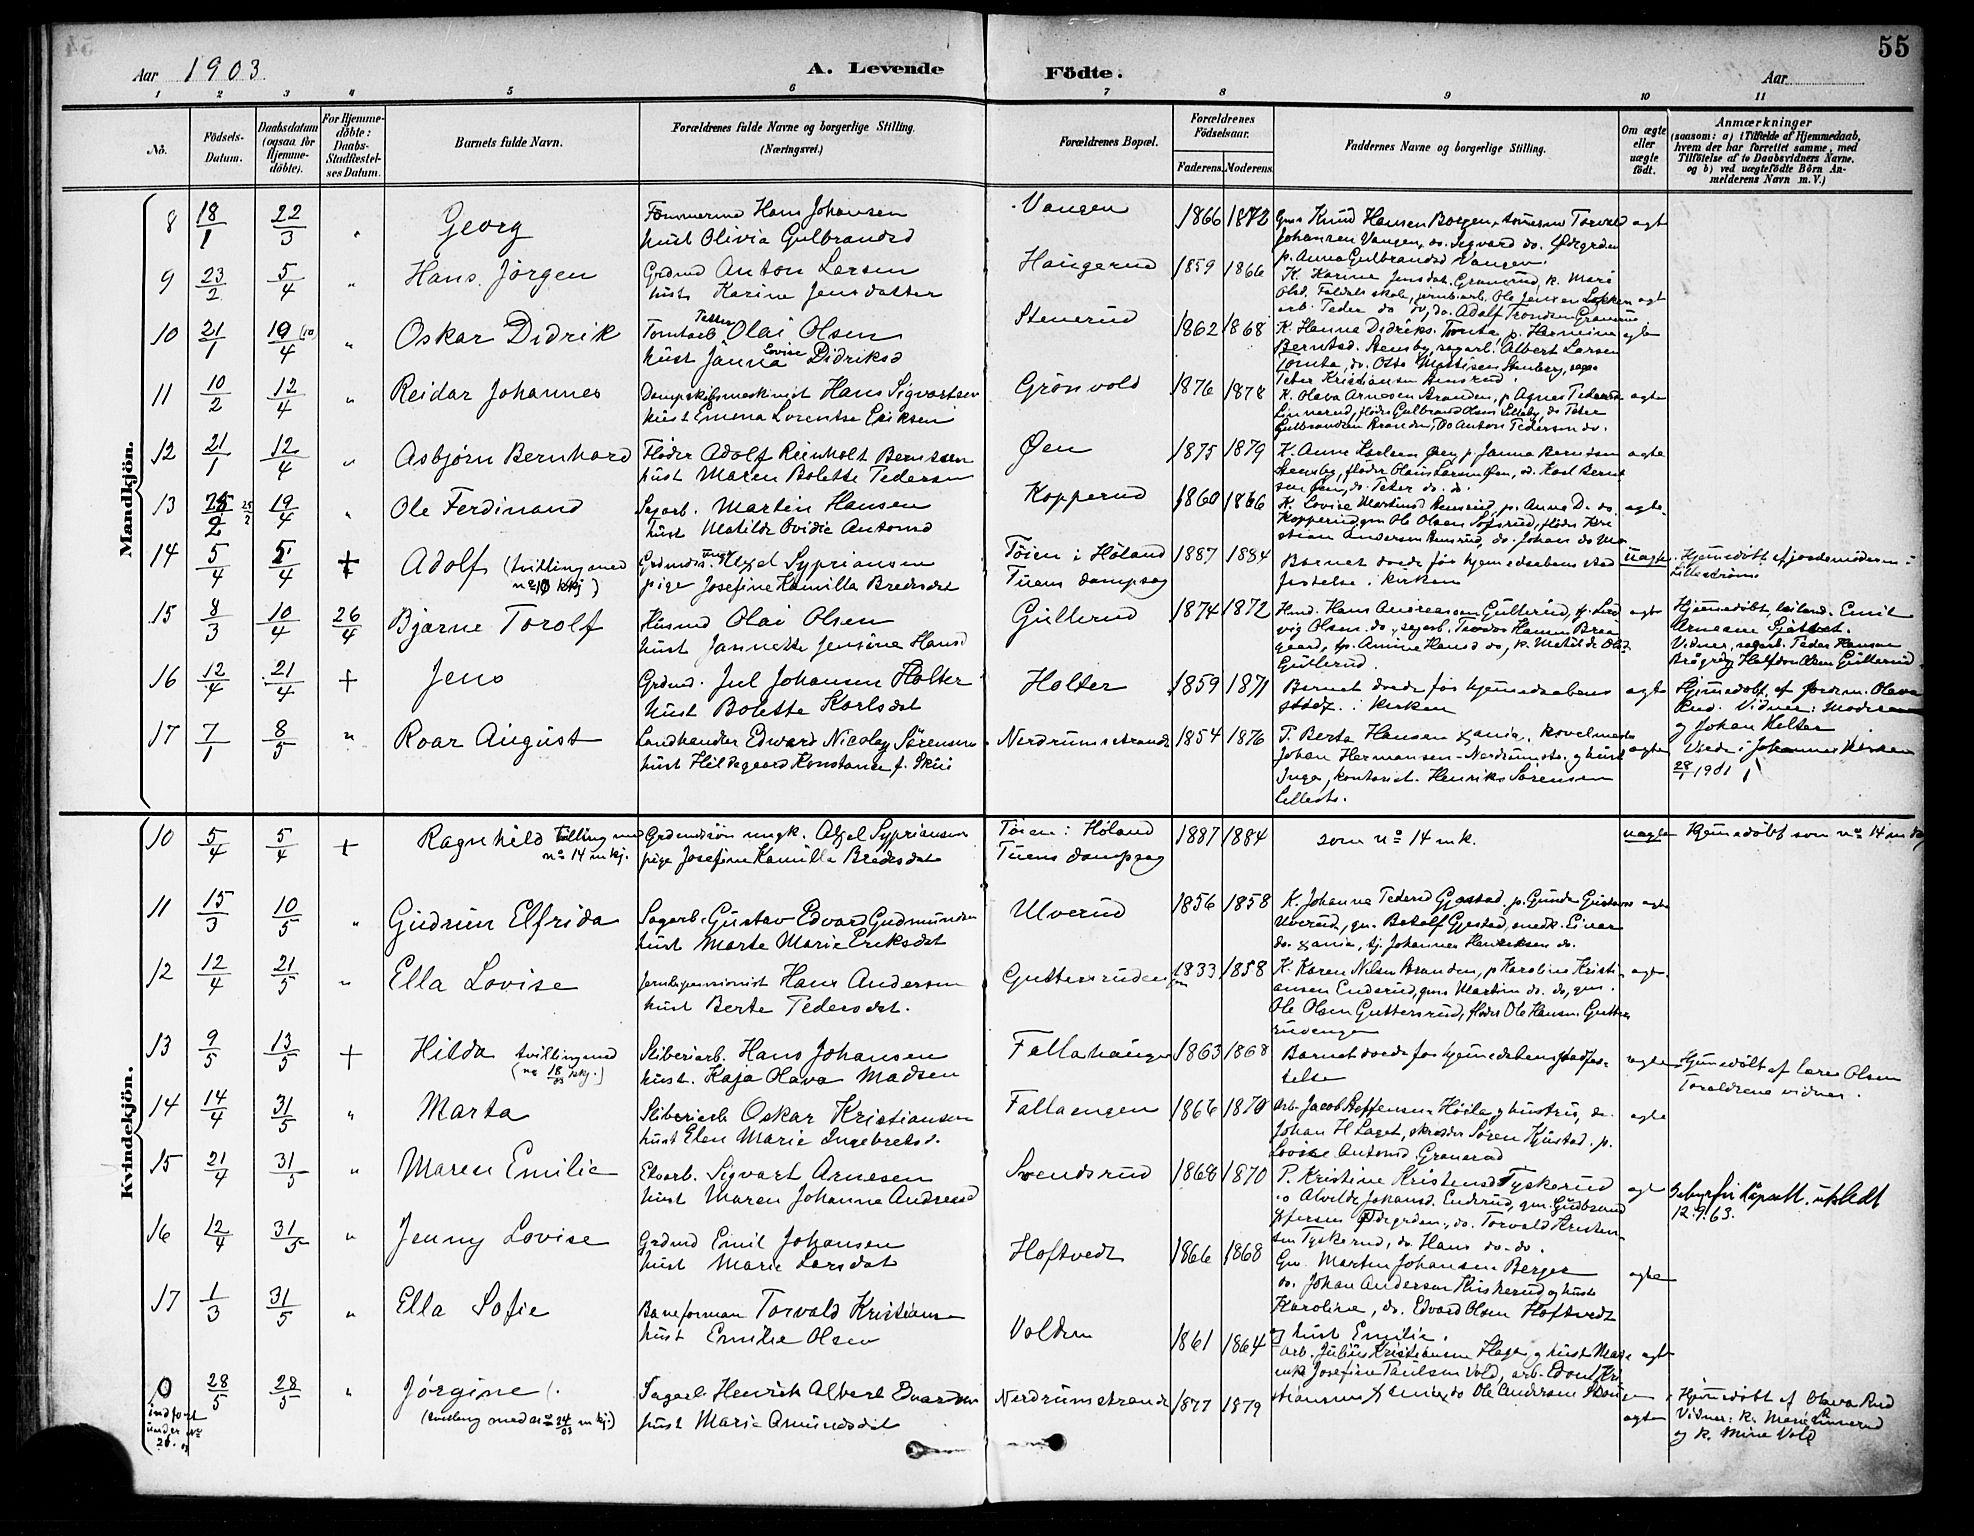 55
Aar 1903.
A. Levende Födte.
Aar
1 2 3 4 5 6 7 8 9 10 11
No.
Födsels-Datum.
Daabsdatum (ogsaa for Hjemme-döbte).
For Hjemme-döbte: Daabs-Stadfæstel-ses Datum.
Barnets fulde Navn.
Forældrenes fulde Navne og borgerlige Stilling. (Næringsvei.)
Forældrenes Bopæl.
Forældrenes Födselsaar.
Faderens. Moderens.
Faddernes Navne og borgerlige Stilling.
Om ægte eller uægte födt.
Anmærkninger
(saasom: a) i Tilfælde af Hjemmedaab,
hvem der har forrettet samme, med
Tilföielse af to Daabsvidners Navne.
og b) ved uægtefödte Börn An-
melderens Navn m. V.)
Mandkjön.
8 18/1 22/3 Georg
Tømmermd Hans Johansen
hust Olivia Gulbrandsd
Vangen 1866 1872
Gm Knud Hansen Borgen, Torvald
Johansen Vangen, do. Sigvard do. Ødegrden
p. Anna Gulbrandsd Vangen
ægte
9 23/2 5/4 Hans Jørgen
Grdmd Anton Larsen
hust Karine Jensdatter
Haugerud 1859 1866
K. Karine Jensdat. Granerud, p. Mari
Olsd. Ole Jensen Løkken
Peder do do, do. Adolf
ægt
10 21/1 19/4 Oskar Didrik
Tomtearb Peder Olai Olsen
hust Janna Lovise Didriksd
Stenerud 1862 1868
K. Hanna Didriks. Tomta, p. Hermine
Berntsd. Stensby, sagarb. Albert Larsen
Tomta, do. Otto Mattisen Stenberg,
Peter Kristiansen
ægte
11 10/2 12/4 Reidar Johannes
Dampskibsmaskinist Hans Sigvartsen
hust Emma Lorentse Eriksen
Grönvold 1876 1878
K. Olava Arnesen Branden, p Agnes Pedersd
Linnerud, fløder Gulbrand Olsen Lilleby, do Peter
Gulbrandsen Branden, Do Anton Pedersen do.
ægte
12 21/1 12/4 Asbjørn Bernhard
Fløder Adolf Reinholt Berntsen
hust Maren Bolette Pedersen
Øen 1875 1879
K. Anne Karlsen Øen, p Janna Berntsen
Stensby, fløder Olaus Larsen Øen, do. Karl Bernt
sen Øen, do. Peter do. do.
ægte
13 25/2 19/4 Ole Ferdinand
Sagarb. Martin Hansen
hust Matilde Ovidie Antonsd
Kopperud 1860 1866
K. Lovise Martinsd Rensrud, p. Anna D. do.
Kopperud, gm Ole Olsen Sofsrud, fløder Kri
stian Andersen Rensrud, do. Johan do
ægte.
14 5/4 5/4 + Adolf (tvilling med
no 10 kkj)
Grdmdsn. ungk Alfel Sypriansen
pige Josefine Kamilla Bredesdat
Töien i Höland
Tuens dampsag
1887 1884
Barnet døde før hjemmedaabens stad
festelse i kirken
uægte
Hjemmedöbt af jordemoderen i
Lilleström
15 8/3 10/4 26/4 Bjarne Torolf
Husmd Olai Olsen
hust Jannette Jensine Hansd
Gullerud 1874 1872
Husmd. Hans Andreassen Gullerud, fp. Lud
vig Olsen do, sagarb. Teodor Hansen Braa
gaard, fp. Anine Hansd do, p. Matilde Olsd.
Gullerud.
ægte
Hjemmedöbt, Emil
Arnesen Sjøtvet.
Vidner, sagarb. Peder Hansen
Braagrd og Halfdan Olsen Gullerud.
16 12/4 21/4 + Jens
Grdmd. Jul Johansen Holter
hust Bolette Karlsdat
Holter 1859 1871
Barnet døde før hjemmedaabens
stadf. i kirken
ægte
Hjemmedöbt af jordem. Olava
Rud. Vidner: Moderen
og Johan Holter
17 7/1 8/5 Roar August
Landhandler Edvard Nicolay Sørensen
hust Hildegaard Konstance f. Skui
Nerdrumstrand 1854 1876
P. Berta Hansen Xania,
Johan Hermansen Nerdrumstr. og hust
Inga, kontorist. Henriks Sørensen
Lillestr.
ægte
Viede i Johannes Kirken
28/1 1901
Kvindekjön.
10 5/4 5/4 + Ragnhild Tvilling med
no 14 mkj.
Grdmdsön ungk. Alfel Sypriansen
pige Josefine Kamilla Bredesdat
Töien i Höland
Tuens dampsag
1887 1884
som no 14 mk.
uægte
Hjemmedöbt som no 14 mk
11 15/3 10/5 Gudrun Elfrida
Sagarb. Gustav Edvard Gudmundsen
hust Marte Marie Eriksdat
Ulverud 1856 1858
K. Johanna Pedersd Gjestad, p. Gunda Gustavs
Ulverud, gm. Betolf Gjestad, snedk. Einar
do. Xania, tj. Johannes Henriksen do.
ægte
12 12/4 21/5 Ella Lovise
Jernbpensionist Hans Andersen
hust Berte Pedersdat.
Guttersrudengen 1833 1858
K. Karen Nilsen Branden, p Karoline Kristi
ansen Enderud, gm Martin do. do, gm.
Ole Olsen Guttersrud, fløder Ole Hansen Gutters
rudengen
ægt.
13 9/5 13/5 + Hilda tvilling med
(no 18/03 kkj.)
Sliberiarb. Hans Johansen
hust. Kaja Olava Madsen
Fallahaugen 1863 1868
Barnet døde før hjemmedabens stadfes-
telse
ægte
Hjemmedöbt af Lars Olsen
Foreldrene vidner.
14 14/4 31/5 Marta
Sliberiarb Oskar Kristiansen
hust Elen Marie Ingebretsd.
Fallaengen 1866 1870
Arb. Jacob Steffensen Höila og hustru, do.
Johan H Laget, skredder Søren Kjustad. p.
Lovise Antonsd. Granerud
ægte
15 21/4 31/5 Maren Emilie
Elvarb. Sigvart Arnesen
hust Maren Johanne Andreasd
Svendsrud 1868 1870
P. Kristine Kristensd Tyskerud
Alvilde Johansd. Enderud, gm. Gudbrand
Ødegrden, do. Torvald Kristen-
sen Tyskerud, do Hans do do.
ægt
12.9.63.
16 12/4 31/5 Jenny Lovise
Grdmd Emil Johansen
hust Marie Larsdat
Hoftvedt 1866 1868
Gm. Martin Johansen Berger
do. Johan Andersen og hust
Karoline, do. Edvard Olsen Hoftvedt
og hust Emilie.
ægte
17 1/3 31/5 Ella Sofie
Baneforman Torvald Kristiansen
hust Emilie Olsen
Volden 1861 1864
arb. Julius Kristiansen Hagen og hust
enke Josefine Paulsen Vold, arb. Edvard Kri
stiansen Xania, do Ole Andersen
ægte
0 indført under no 20.03 28/5 28/5 Jørgine
(tvilling med no 24/03 mkj)
Sagarb. Henrik Albert Edvardsen
hust Marie Amundsdat
Nerdrumstrand 1877 1879
ægte
Hjemmedöbt af Olava Rud
Vidner: k. Marie Linnerud
og k. Mina Vold